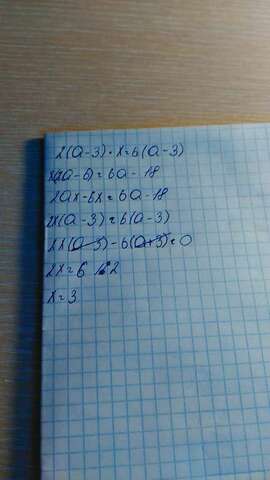 2(a-3)·x=6(a-3)
x(2a-6)=6a-18
2ax-6x=6a-18
2x(a-3)=6(a-3)
2x(a-3)-6(a+3)=0
2x=6 |:2
x=3